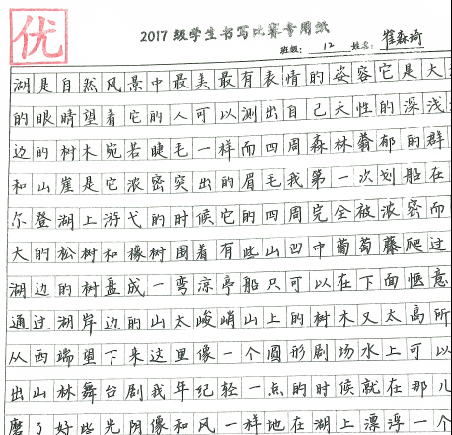 优
2017级学生书写比赛专用纸
班级：12 姓名：崔森瑜
湖是自然风景中最美最有表情的姿容它是大
的眼睛望着它的人可以测出自己天性的深浅
边的树木宛若睫毛一样而四周森林蓊郁的群
和山崖是它浓密突出的眉毛我第一次划船在
尔登湖上游弋的时候它的四周完全被浓密而
大的松树和橡树围着有些山凹中葡萄藤爬过
湖边的树盘成一弯凉亭船只可以在下面惬意
通过湖岸边的山太峻峭山上的树木又太高所
从西端望下来这里像一个圆形剧场水上可以
出山林舞台剧我年纪轻一点的时候就在那儿
磨了好些光阴像和风一样地在湖上漂浮一个